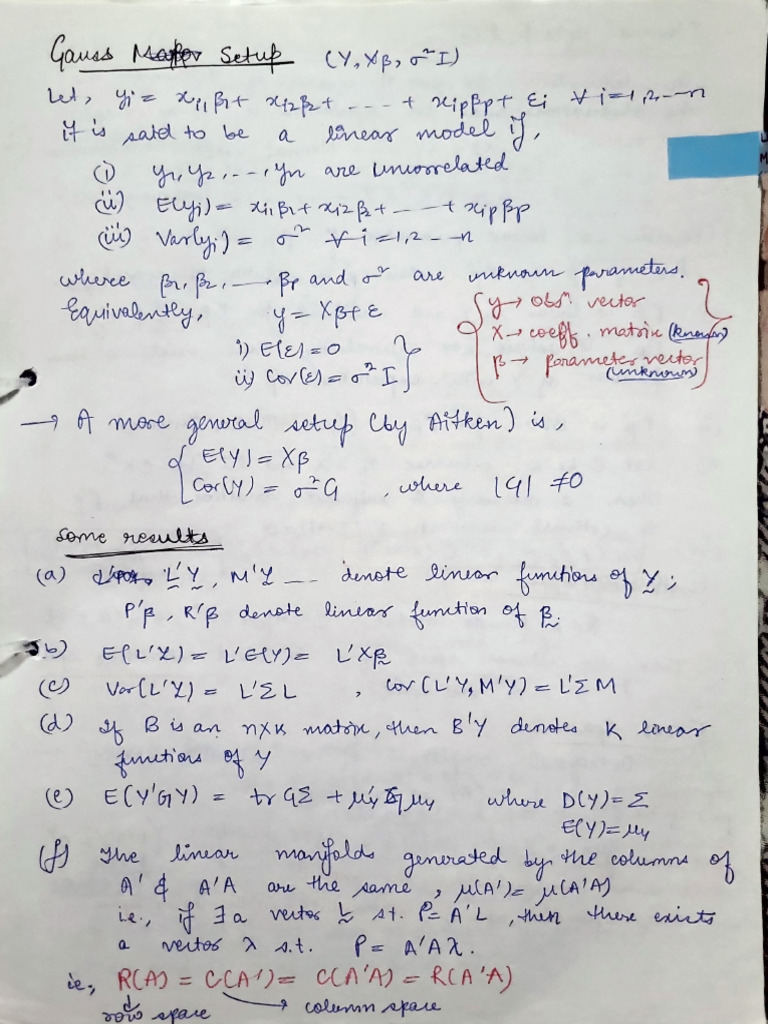 Gauss Setup (Y, Xβ, σ²I)
Let, yi = xi1β1 + xi2β2 + ---- + xipβp + εi ∀ i=1,2---n
it is said to be a linear model if,
(i) y1, y2, ---, yn are uncorrelated
(ii) E(yi) = xi1β1 + xi2β2 + ---- + xipβp
(iii) Var(yi) = σ² ∀ i=1,2---n
where β1, β2, ---- βp and σ² are unknown parameters.
Equivalently, y = Xβ + ε
i) E(ε) = 0
ii) Cov(ε) = σ²I
y → obsⁿ. vector
X → coeff. matrix (known)
β → parameter vector
(unknown)
→ A more general setup (by Aitken) is,
E(Y) = Xβ
Cov(Y) = σ²G , where |G| ≠ 0
Some results
(a) L'Y, M'Y --- denote linear functions of Y;
P'β, R'β denote linear function of β.
(b) E(L'Y) = L'E(Y) = L'Xβ
(c) Var(L'Y) = L'ΣL , Cov(L'Y, M'Y) = L'ΣM
(d) If B is an n×k matrix, then B'Y denotes K linear
functions of Y
(e) E(Y'GY) = tr GΣ + μy' G μy where D(Y) = Σ
E(Y) = μy
(f) The linear manifolds generated by the columns of
A' & A'A are the same, μ(A') = μ(A'A)
i.e., if ∃ a vector L s.t. P = A'L, then there exists
a vector λ s.t. P = A'Aλ.
ie, R(A) = C(A') = C(A'A) = R(A'A)
row space → column space